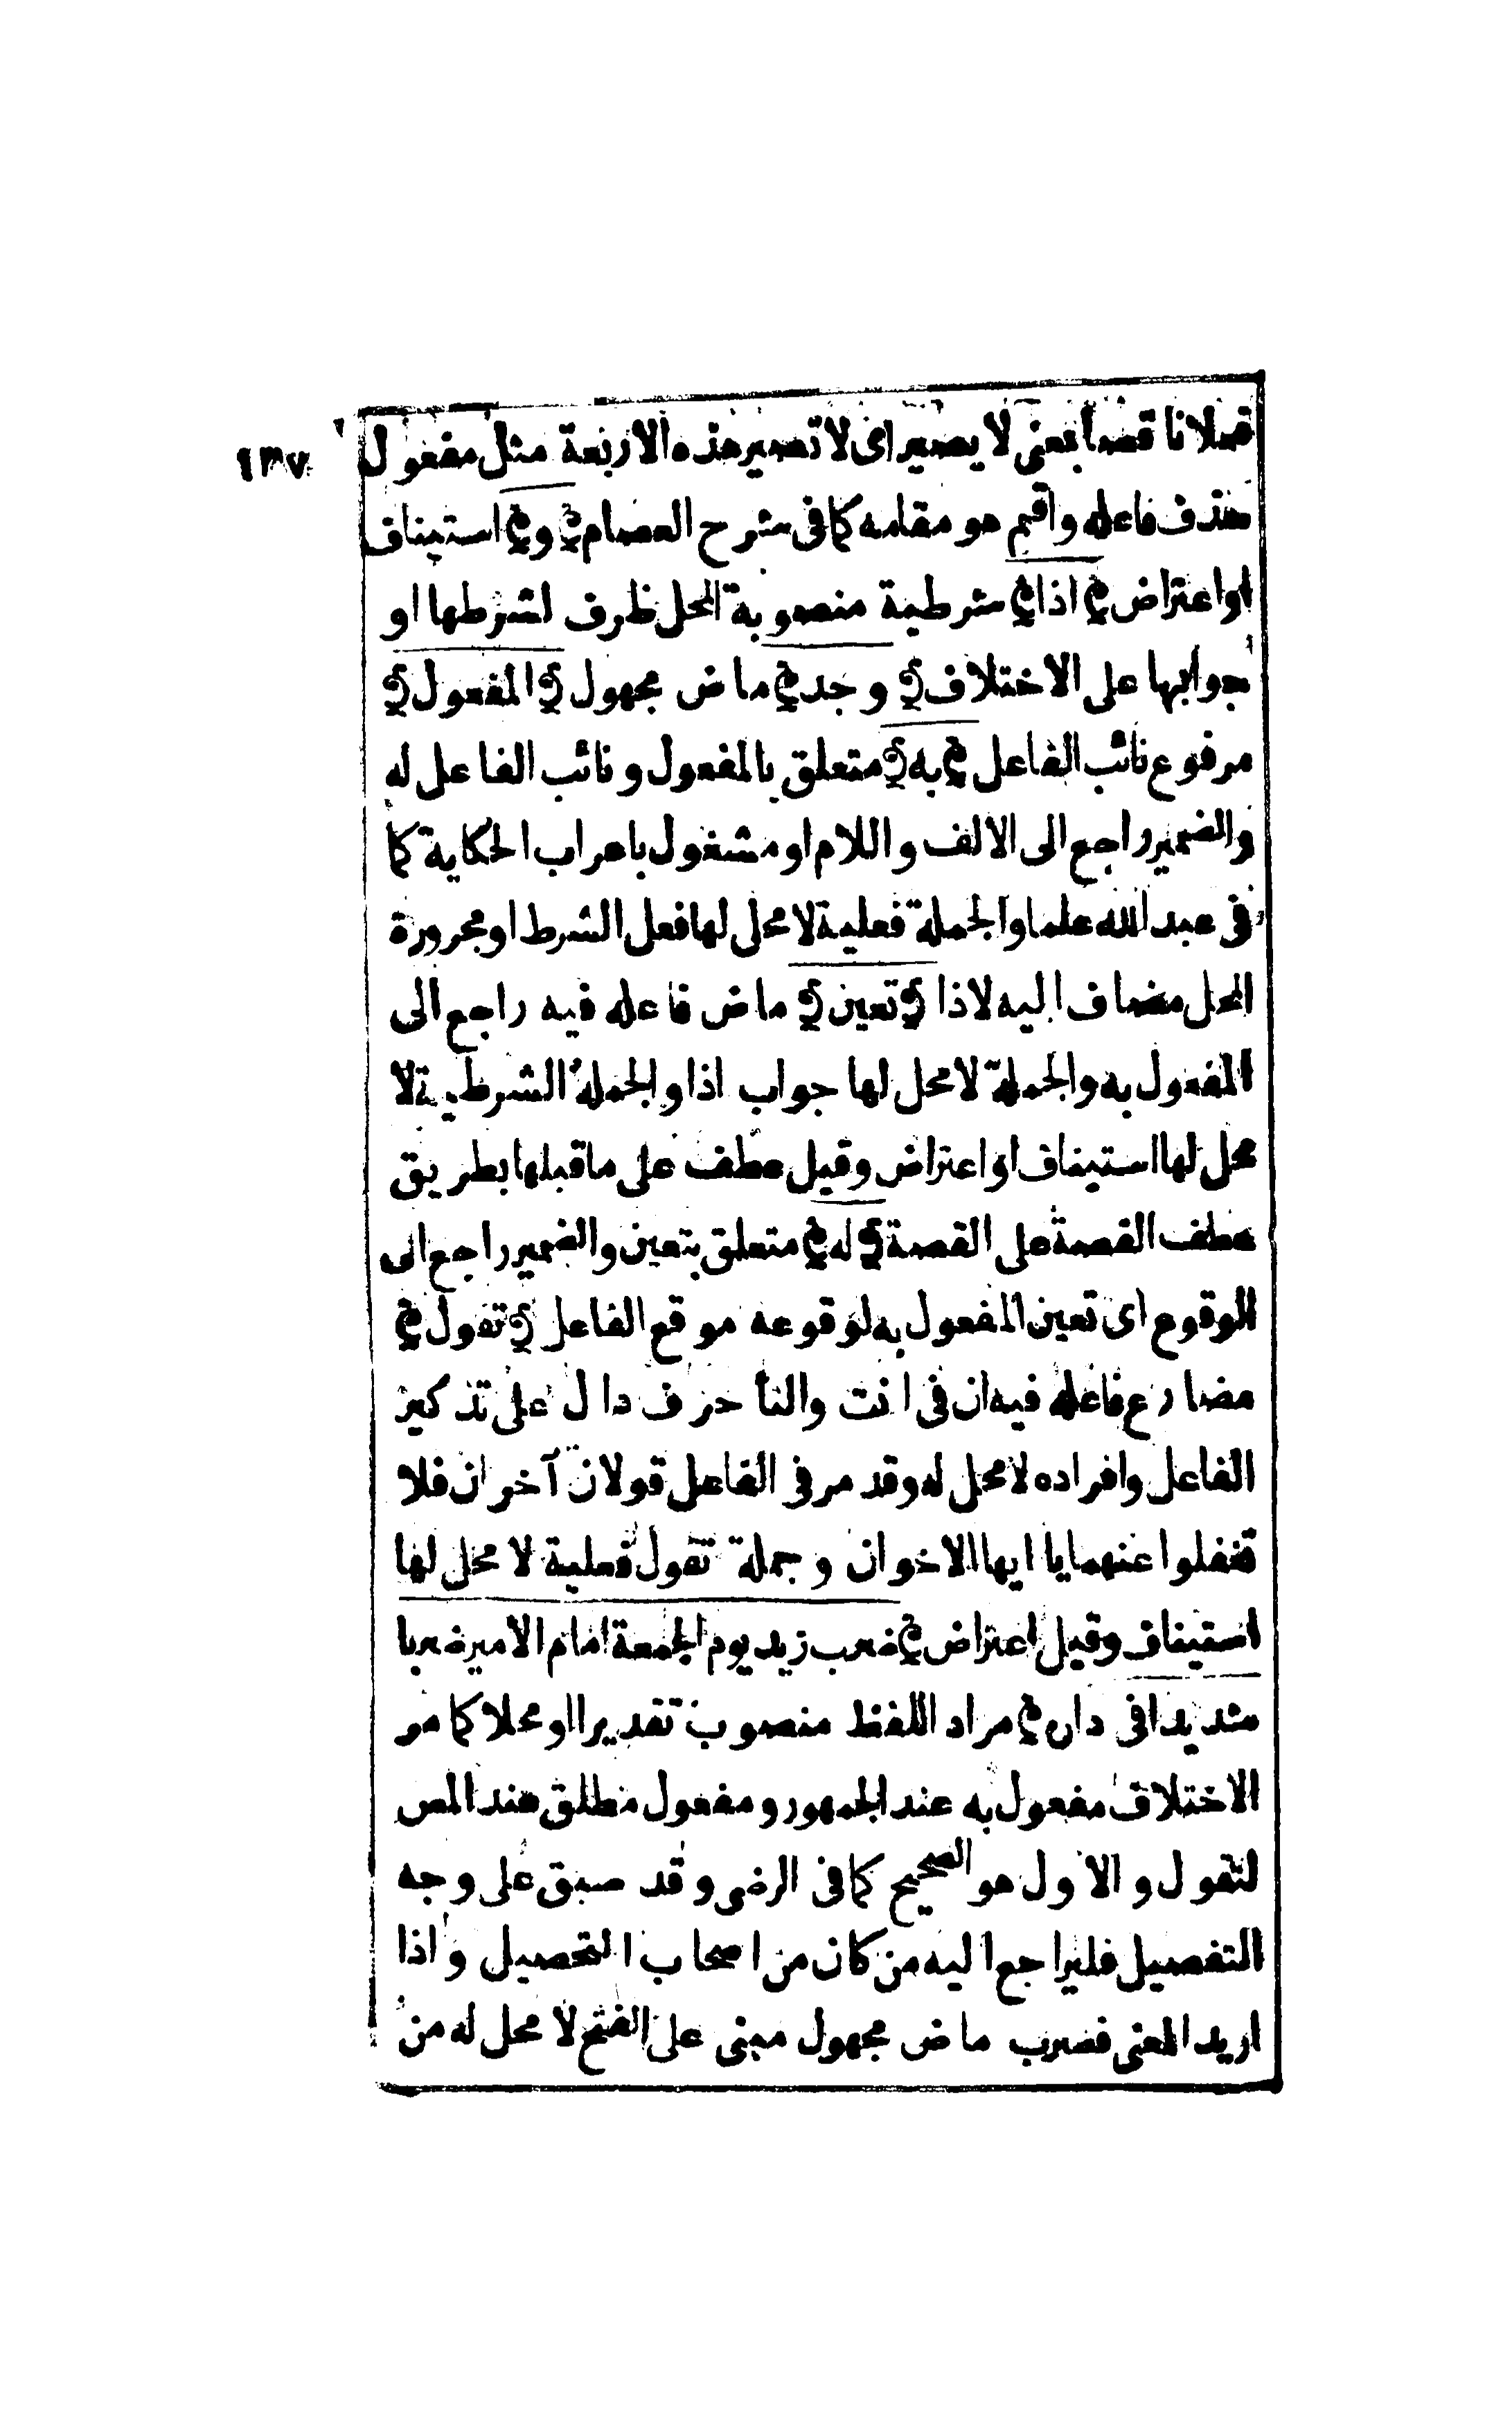 ١٣٧
فعلا ناقصا بمعنى لا يصير اى لا تصير هذه الاربعة مثل مفعول
حذف فاعله واقيم هو مقامه كما فى شرح العصام ﴿ و ﴾ استيناف
او اعتراض ﴿ اذا ﴾ شرطية منصوبة المحل ظرف لشرطها او
جوابها على الاختلاف ﴿ وجد ﴾ ماض مجهول ﴿ المفعول ﴾
مرفوع نائب الفاعل ﴿ به ﴾ متعلق بالمفعول ونائب الفاعل له
والضمير راجع الى الالف واللام او مشغول باعراب الحكاية كما
فى عبد الله علما والجملة فعلية لا محل لها فعل الشرط او مجرورة
المحل مضاف اليه لاذا ﴿ تعين ﴾ ماض فاعله فيه راجع الى
المفعول به والجملة لا محل لها جواب اذا والجملة الشرطية لا
محل لها استيناف او اعتراض وقيل عطف على ما قبلها بطريق
عطف القصة على القصة ﴿ له ﴾ متعلق بتعين والضمير راجع الى
الوقوع اى تعين المفعول به لوقوعه موقع الفاعل ﴿ تقول ﴾
مضارع فاعله فيه ان فى انت والتأ حرف دال على تذكير
الفاعل وافراده لا محل له وقد مر فى الفاعل قولان آخران فلا
تغفلوا عنهما يا ايها الاخوان وجملة تقول فعلية لا محل لها
استيناف وقيل اعتراض ﴿ ضرب زيد يوم الجمعة امام الامير ضربا
شديدا فى داره ﴾ مراد اللفظ منصوب تقديرا او محلا كما مر
الاختلاف مفعول به عند الجمهور ومفعول مطلق عند المص
لتقول والاول هو الصحيح كما فى الرضى وقد سبق على وجه
التفصيل فليراجع اليه من كان من اصحاب التحصيل واذا
اريد المعنى فضرب ماض مجهول مبنى على الفتح لا محل له من